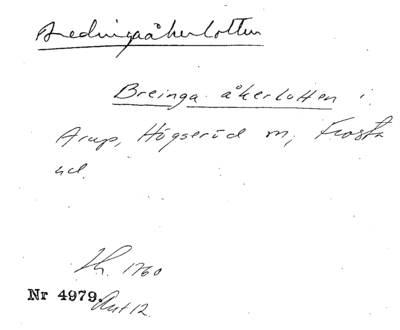 Bredingaåkerlotten
Breinga åkerlotten i
Arup, Högseröd sn, Frosta
hd.
Lh. 1760
Nr 4979. Akt 12